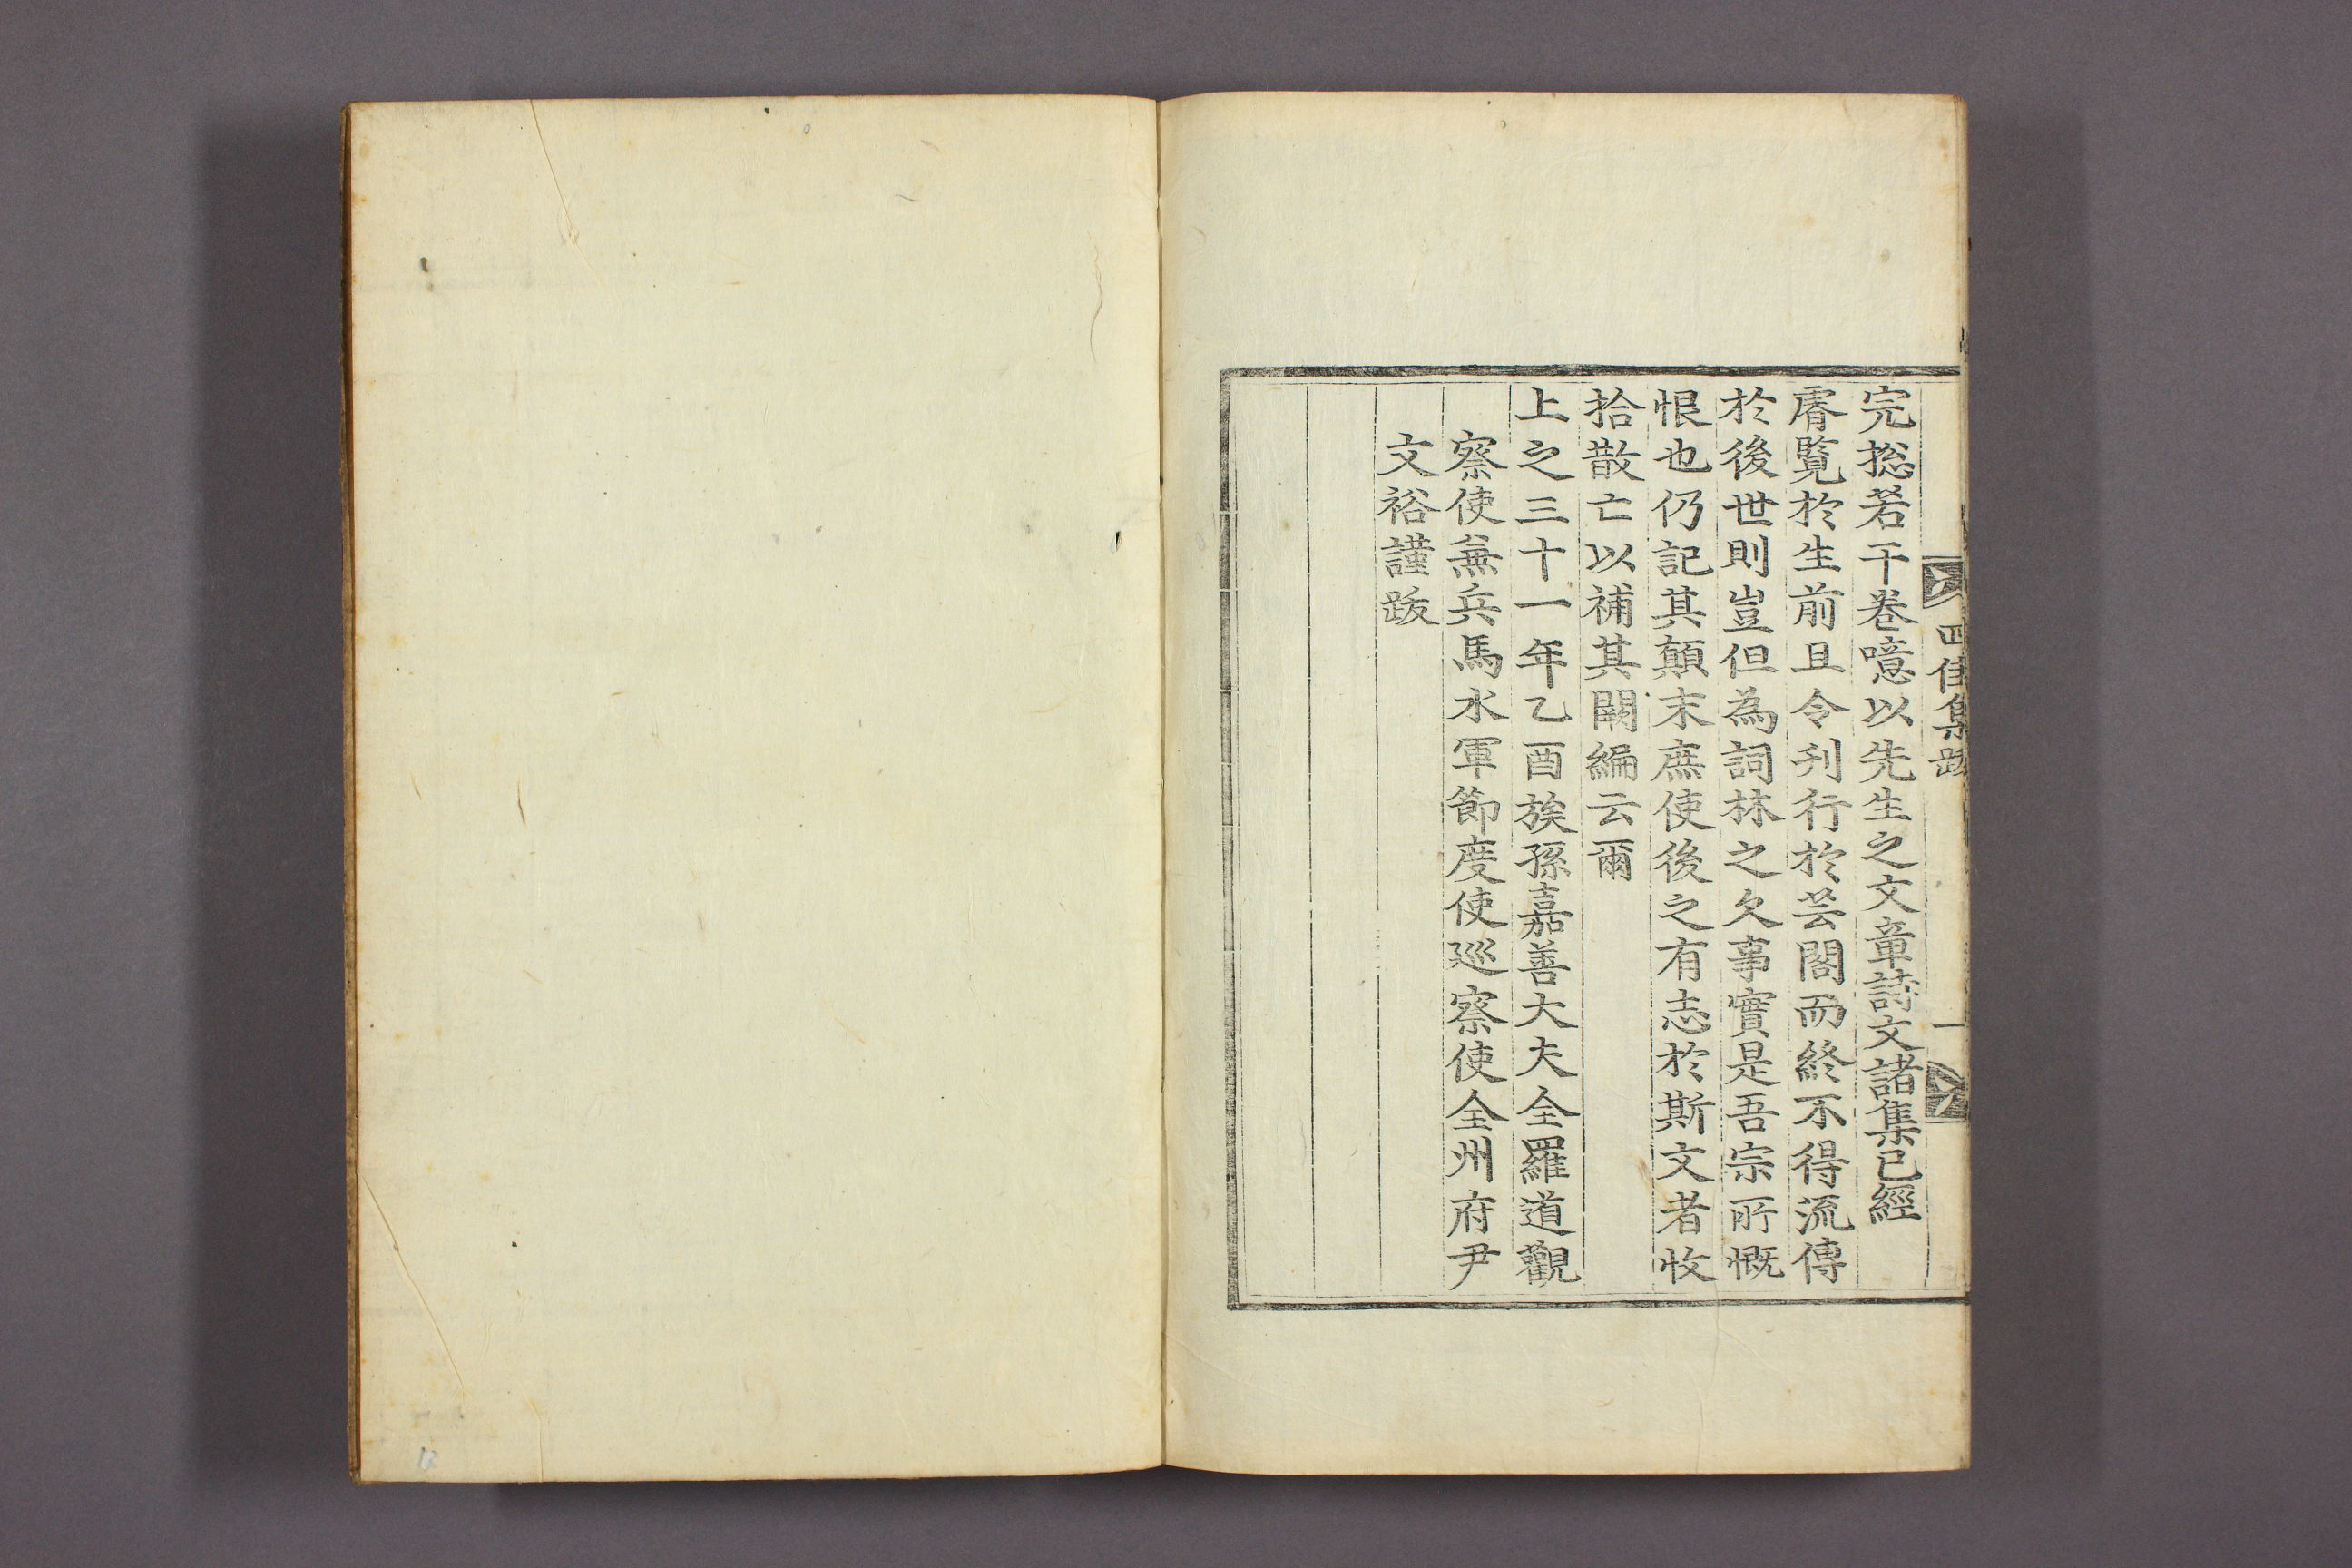 四佳集跋
一
完揔若干卷噫以先生之文章詩文諸集已經
睿覽於生前且令刋行於芸閣而終不得流傳
於後世則豈但為詞林之欠事實是吾宗所慨
恨也仍記其顛末庶使後之有志於斯文者收
拾散亡以補其闕編云爾
上之三十一年乙酉族孫嘉善大夫全羅道觀
察使兼兵馬水軍節度使巡察使全州府尹
文裕謹跋
12